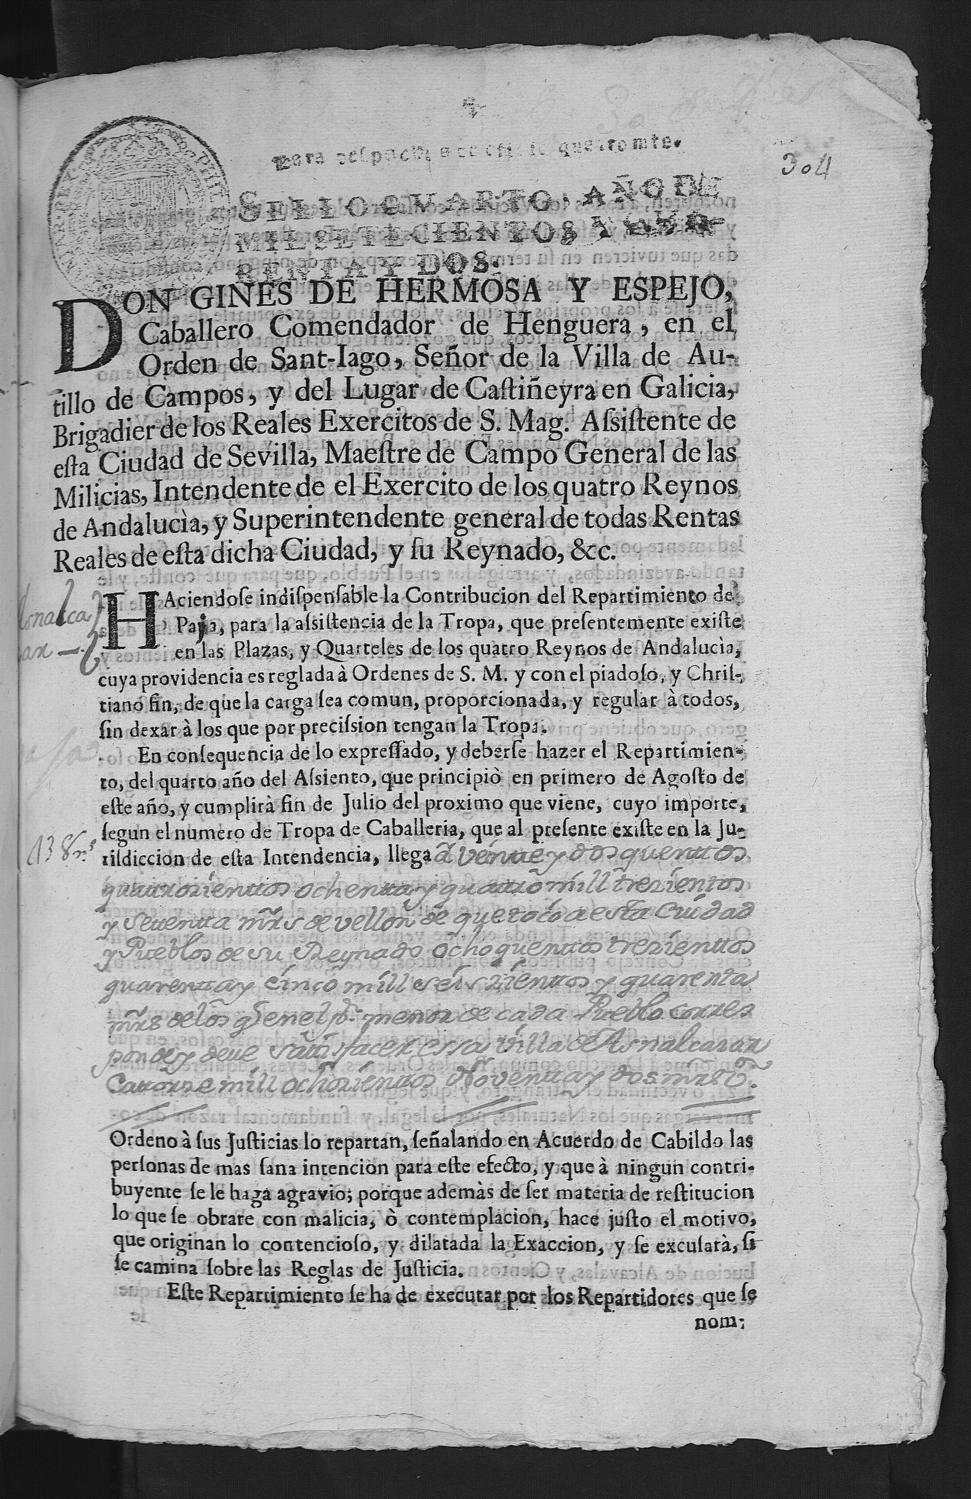 304
Para despachos de oficio quatro mrs.
SELLO QVARTO, AÑO DE
MIL SETECIENTOS Y QVA-
RENTA Y DOS.
DON GINES DE HERMOSA Y ESPEJO,
Caballero Comendador de Henguera, en el
Orden de Sant-Iago, Señor de la Villa de Au-
tillo de Campos, y del Lugar de Castiñeyra en Galicia,
Brigadier de los Reales Exercitos de S. Mag. Assistente de
esta Ciudad de Sevilla, Maestre de Campo General de las
Milicias, Intendente de el Exercito de los quatro Reynos
de Andalucìa, y Superintendente general de todas Rentas
Reales de esta dicha Ciudad, y su Reynado, &c.
HAciendose indispensable la Contribucion del Repartimiento de
Paja, para la assistencia de la Tropa, que presentemente existe
en las Plazas, y Quarteles de los quatro Reynos de Andalucìa,
cuya providencia es reglada à Ordenes de S. M. y con el piadoso, y Chris-
tiano fin, de que la carga sea comun, proporcionada, y regular à todos,
sin dexar à los que por precission tengan la Tropa.
En consequencia de lo expressado, y deberse hazer el Repartimien-
to, del quarto año del Assiento, que principiò en primero de Agosto de
este año, y cumplirà fin de Julio del proximo que viene, cuyo importe,
segun el numero de Tropa de Caballeria, que al presente existe en la Ju-
risdiccion de esta Intendencia, llega à veintte y dos quenttos
quattrozienttos ochentta y quattro mill trezientos
y settentta mrs de vellon de que toco a esta Ciudad
y Pueblos de su Reynado ocho quenttos trezienttos
quarentta y cinco mill seiszienttos y quarenta
mrs de los qs en el pr. menor de cada Pueblo corres
ponde y deue sattisfacer essa villa de Asnalcazar
Cattorze mill ochozienttos Noventta y dos mrs
Ordeno à sus Justicias lo repartan, señalando en Acuerdo de Cabildo las
personas de mas sana intencion para este efecto, y que à ningun contri-
buyente se le haga agravio; porque ademàs de ser materia de restitucion
lo que se obrare con malicia, ò contemplacion, hace justo el motivo,
que originan lo contencioso, y dilatada la Exaccion, y se excusarà, si
se camina sobre las Reglas de Justicia.
Este Repartimiento se ha de executar por los Repartidores que se
nom-